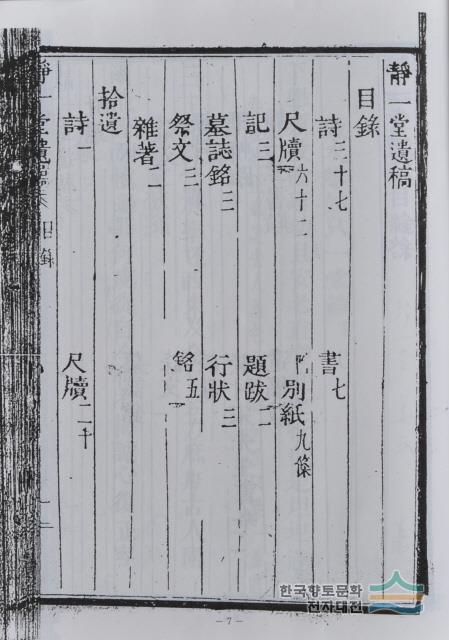 靜一堂遺稿
目錄
詩三十七 書七
尺牘六十二 附別紙九條
記三 題跋二
墓誌銘三 行狀三
祭文三 銘五
雜著二
拾遺
詩一 尺牘二十
靜一堂遺稿 目錄
한국향토문화
전자대전
- 7 -